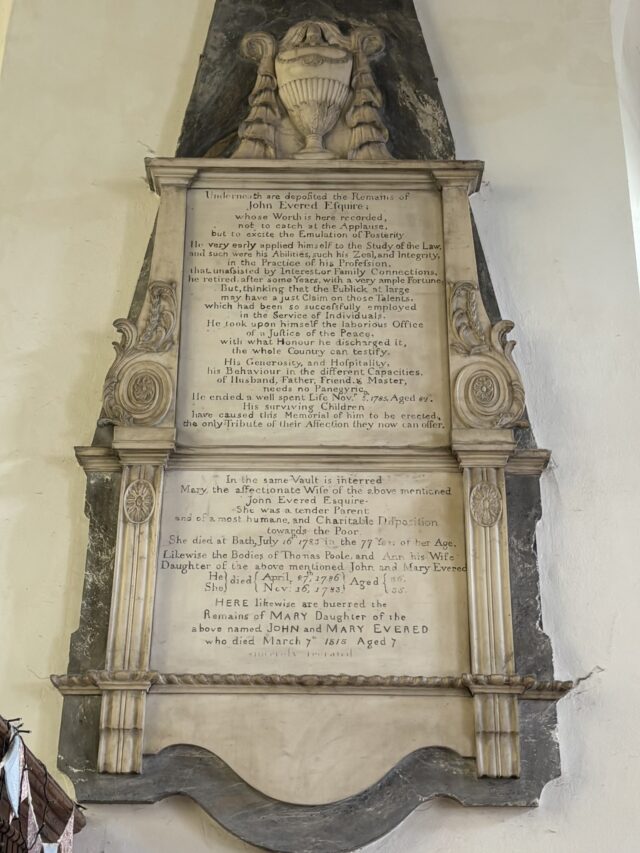 Underneath are deposited the Remains of
John Evered Esquire;
whose Worth is here recorded,
not to catch at the Applause,
but to excite the Emulation of Posterity
He very early applied himself to the Study of the Law,
and such were his Abilities, such his Zeal, and Integrity,
in the Practice of his Profession,
that unassisted by Interest, or Family Connections,
he retired after some Years, with a very ample Fortune
But, thinking that the Publick at large
may have a just Claim on those Talents,
which had been so sucessfully employed
in the Service of Individuals.
He took upon himself the laborious Office
of a Justice of the Peace,
with what Honour he discharged it,
the whole Country can testify.
His Generosity, and Hospitality,
his Behaviour in the different Capacities,
of Husband, Father, Friend, & Master,
needs no Panegyric,
He ended a well spent Life Nov.r 1785, Aged
His surviving Children
have caused this Memorial of him to be erected,
the only Tribute of their Affection they now can offer.
In the same Vault is interred
Mary, the affectionate Wife of the above mentioned
John Evered Esquire.
She was a tender Parent
and of a most humane, and Charitable Disposition
towards the Poor.
She died at Bath, July 16th 1783 in the 77 Year of her Age.
Likewise the Bodies of Thomas Poole, and Ann his Wife
Daughter of the above mentioned John and Mary Evered
He } died { April, 27th, 1786 } Aged {
She } { Nov: 16, 1783 }
HERE likewise are buerred the
Remains of MARY Daughter of the
above named JOHN and MARY EVERED
who died March 7th 1815 Aged 7